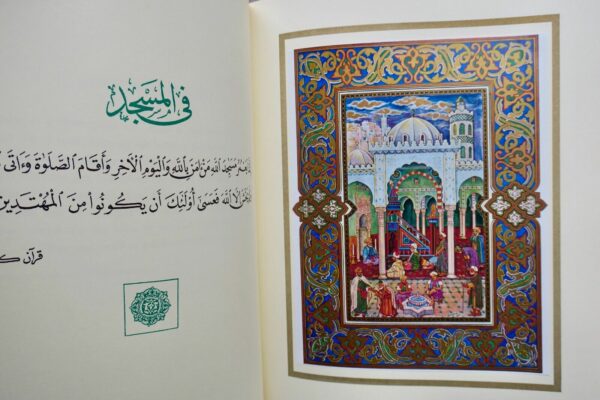 فى المسجد
مسجد الله من ءامن بالله واليوم الأخر وأقام الصلوٰة وءاتى
إلا الله فعسى أولئك أن يكونوا من المهتدين
قرآن